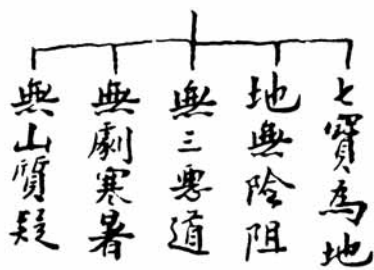 七寶為地
地無險阻
無三惡道
無劇寒暑
無山質疑